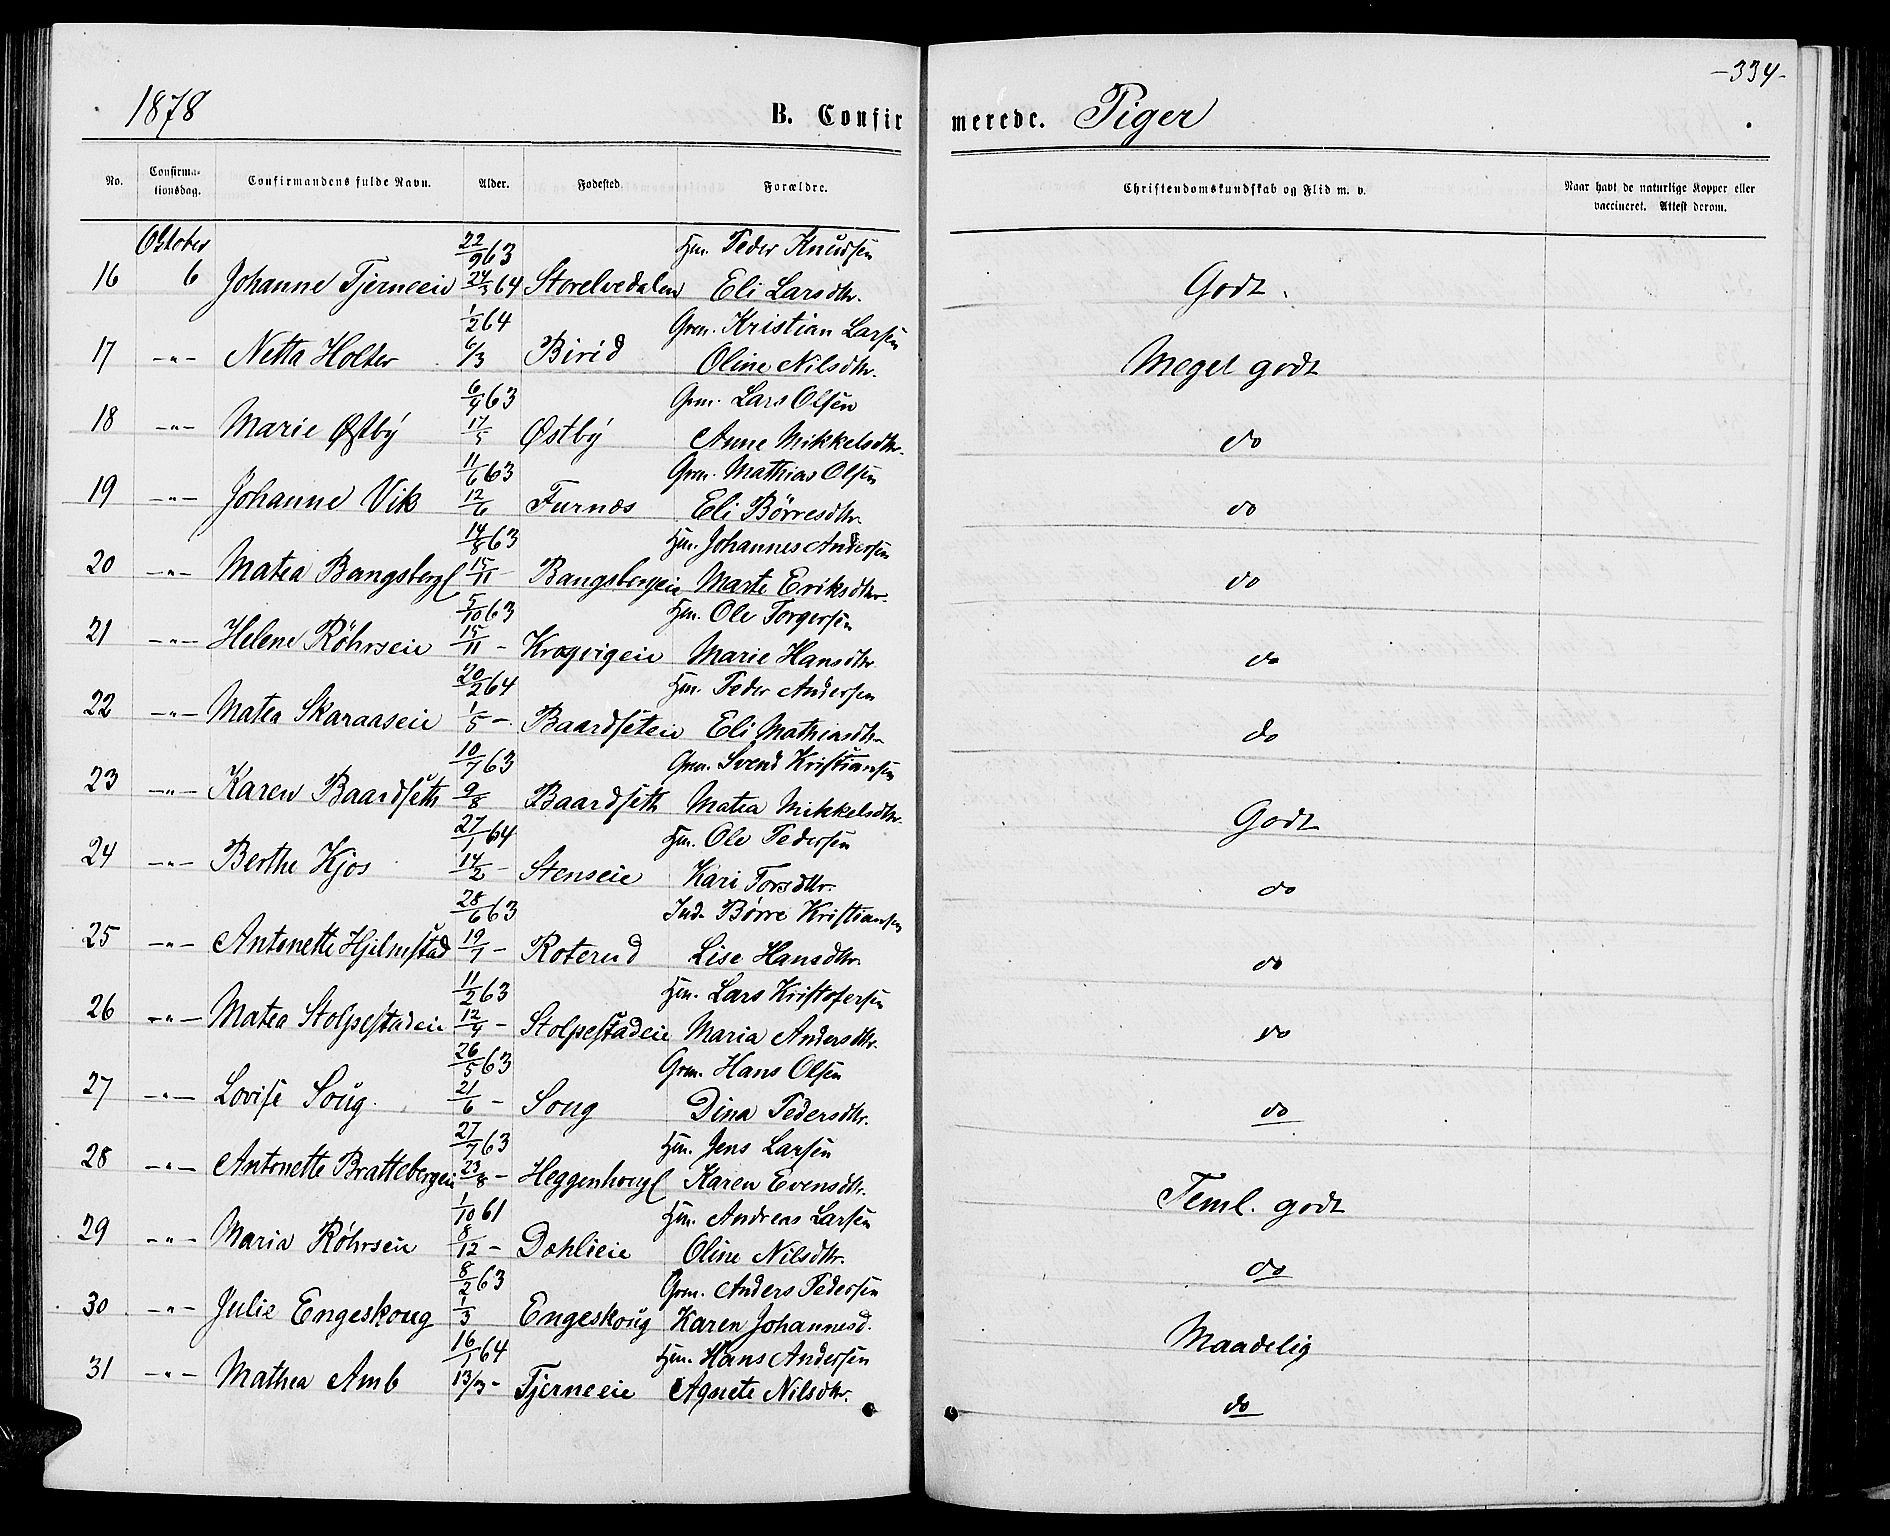 -334-
1878 B. Confir merede. Piger
No. Confirma- Confirmandens fulde Navn. Alder. Fødested. Forældre. Christendomskundskab og Flid m. v. Naar havt de naturlige Kopper eller
tionsdag. vaccineret. Attest derom.
October 22/9 63 Hm. Peder Knudsen
16 6 Johanne Tjerneeie 24/3 64 Storelvedalen Eli Larsdtr. Godt.
1/2 64 Grm. Kristian Larsen
17 -"- Netta Holter 6/3 Birid Oline Nilsdtr. Meget godt
6/4 63 Grm. Lars Olsen
18 -"- Marie Østby 17/5 Østby Anne Mikkelsdtr. do
11/6 63 Grm. Mathias Olsen
19 -"- Johanne Vik 12/6 Furnæs Eli Børresdtr. do
14/8 63 Hm. Johannes Andersen
20 -"- Matea Bangsberg 15/11 - Bangsbergeie Marte Eriksdtr. do
5/10 63 Hm. Ole Torgersen
21 -"- Helene Røhrseie 15/11 - Kragvigeie Marie Hansdtr. do
20/2 64 Hm. Peder Andersen
22 -"- Matea Skaraaseie 1/5 -. Baardseteie Eli Mathiasdtr. do
10/7 63 Grm. Svend Kristiansen
23 -"- Karen Baardseth 9/8 Baardseth Matea Mikkelsdtr. Godt
27/1 64 Hm. Ole Pedersen
24 -"- Berthe Kjos 14/2 - Stenseie Kari Torsdtr. do
28/6 63 Ind. Børre Kristiansen
25 -"- Antonette Hjelmstad 19/7 - Roterud Lise Hansdtr. do
11/2 63 Hm. Lars Kristofersen
26 -"- Matea Stolpestadeie 12/4 - Stolpestadeie Maria Andersdtr. do
26/5 63 Grm. Hans Olsen
27 -"- Lovise Soug. 21/6 - Soug Dina Pedersdtr. do
27/7 63 Hm. Jens Larsen
28 -"- Antonette Brattebergeie 23/8 - Heggenhoug Karen Evensdtr. Teml. godt
1/10 61 Hm. Andreas Larsen
29 -"- Maria Røhrseie 8/12 - Dæhlieie Oline Nilsdtr. do
8/2 63 Grm. Anders Pedersen
30 -"- Julie Engeskoug 1/3 Engeskoug Karen Johannesd. Maadelig
16/1 64 Hm. Hans Andersen
31 -"- Mathea Amb 13/3 - Tjerneeie Agnete Nilsdtr. do